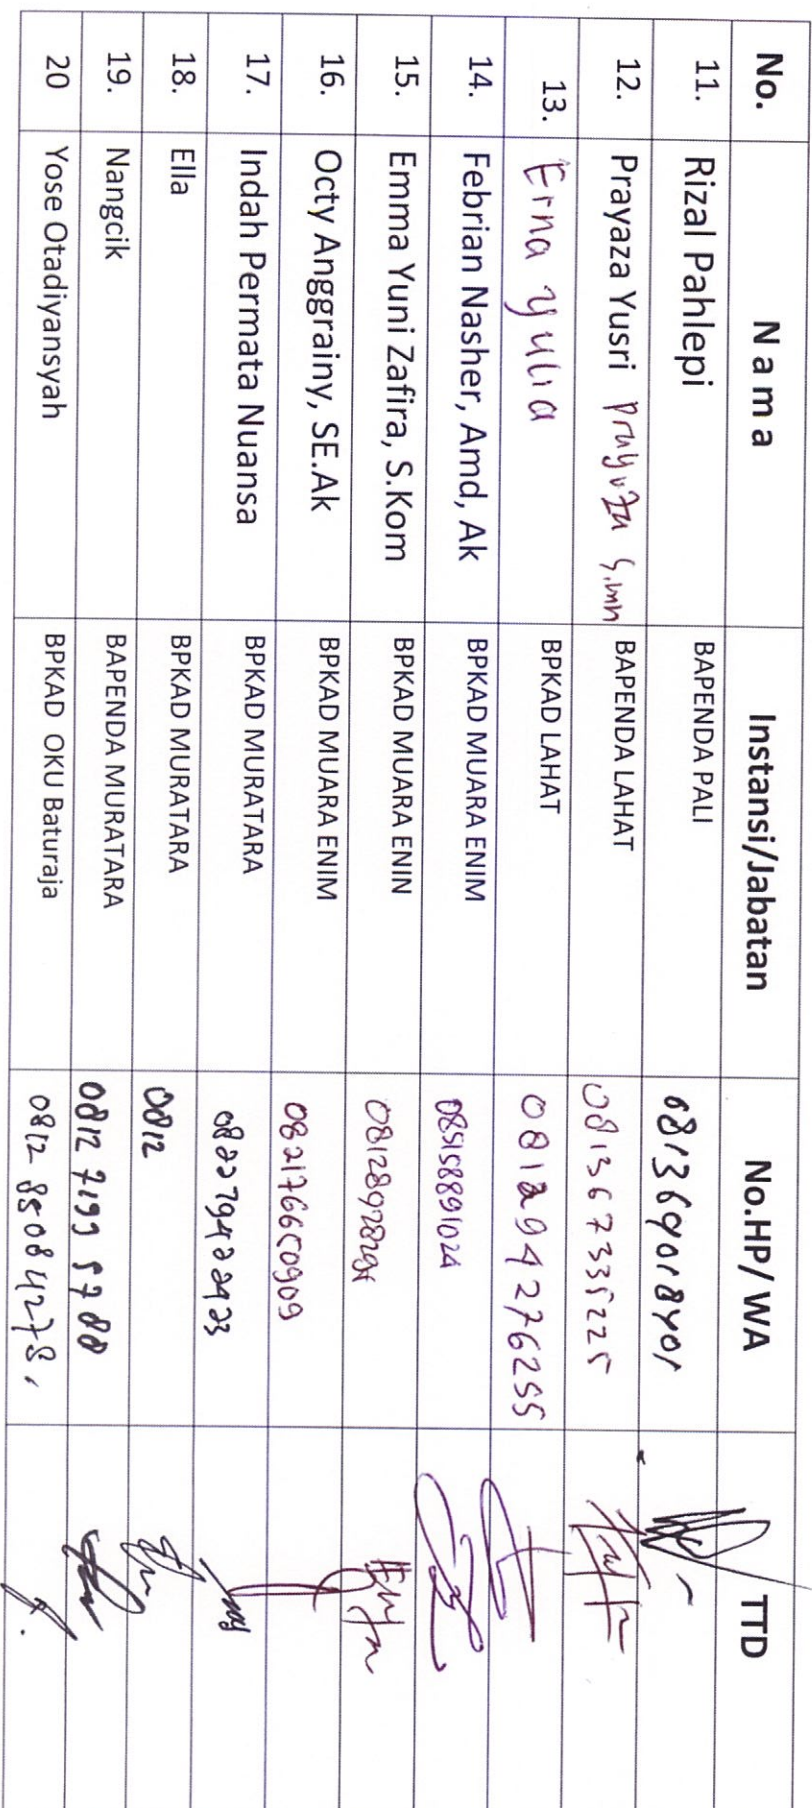 No. N a m a Instansi/Jabatan No.HP/ WA TTD
11. Rizal Pahlepi BAPENDA PALI
12. Prayaza Yusri BAPENDA LAHAT 081367335225
13. Erna Yulia BPKAD LAHAT 081294276255
14. Febrian Nasher, Amd, Ak BPKAD MUARA ENIM 085158891024
15. Emma Yuni Zafira, S.Kom BPKAD MUARA ENIN
16. Octy Anggrainy, SE.Ak BPKAD MUARA ENIM
17. Indah Permata Nuansa BPKAD MURATARA
18. Ella BPKAD MURATARA 0812
19. Nangcik BAPENDA MURATARA 0812 7199 5788
20 Yose Otadiyansyah BPKAD OKU Baturaja 0812 85084278